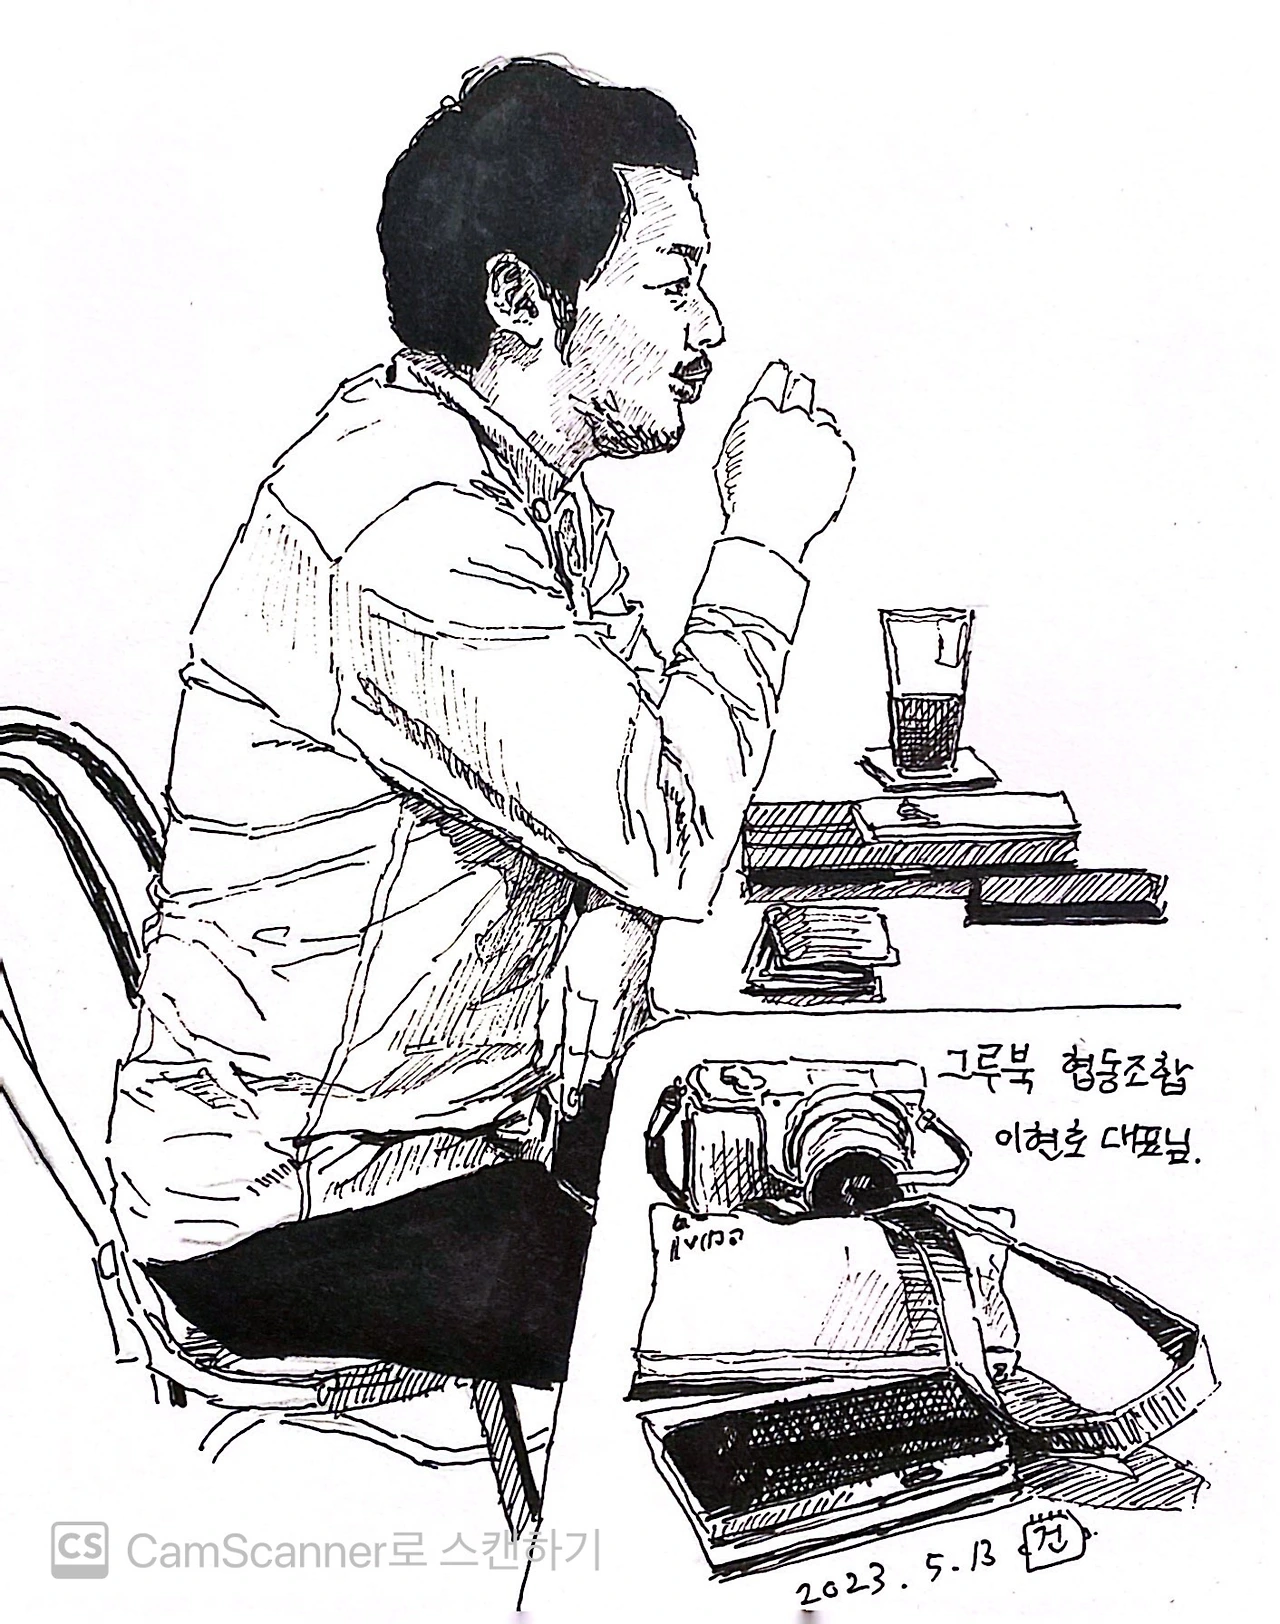 그루북 협동조합
이현호 대표님.
2023. 5. 13 건
CS CamScanner로 스캔하기